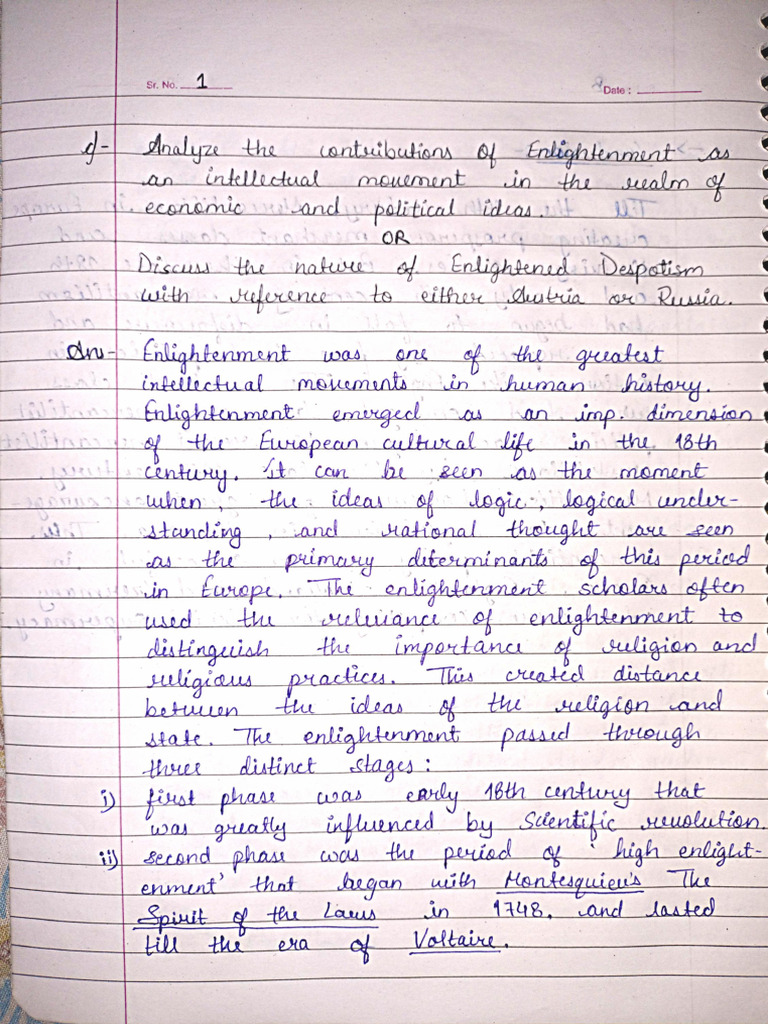 Sr. No. 1
Date :
Q- Analyze the contributions of Enlightenment as
an intellectual movement in the realm of
economic and political ideas.
OR
Discuss the nature of Enlightened Despotism
with reference to either Austria or Russia.
Ans- Enlightenment was one of the greatest
intellectual movements in human history.
Enlightenment emerged as an imp. dimension
of the European cultural life in the 18th
century. It can be seen as the moment
when, the ideas of logic, logical under-
standing, and rational thought are seen
as the primary determinants of this period
in Europe. The enlightenment scholars often
used the relevance of enlightenment to
distinguish the importance of religion and
religious practices. This created distance
between the ideas of the religion and
state. The enlightenment passed through
three distinct stages :
i) first phase was early 18th century that
was greatly influenced by Scientific revolution.
ii) second phase was the period of 'high enlight-
enment' that began with Montesquieu's The
Spirit of the Laws in 1748, and lasted
till the era of Voltaire.